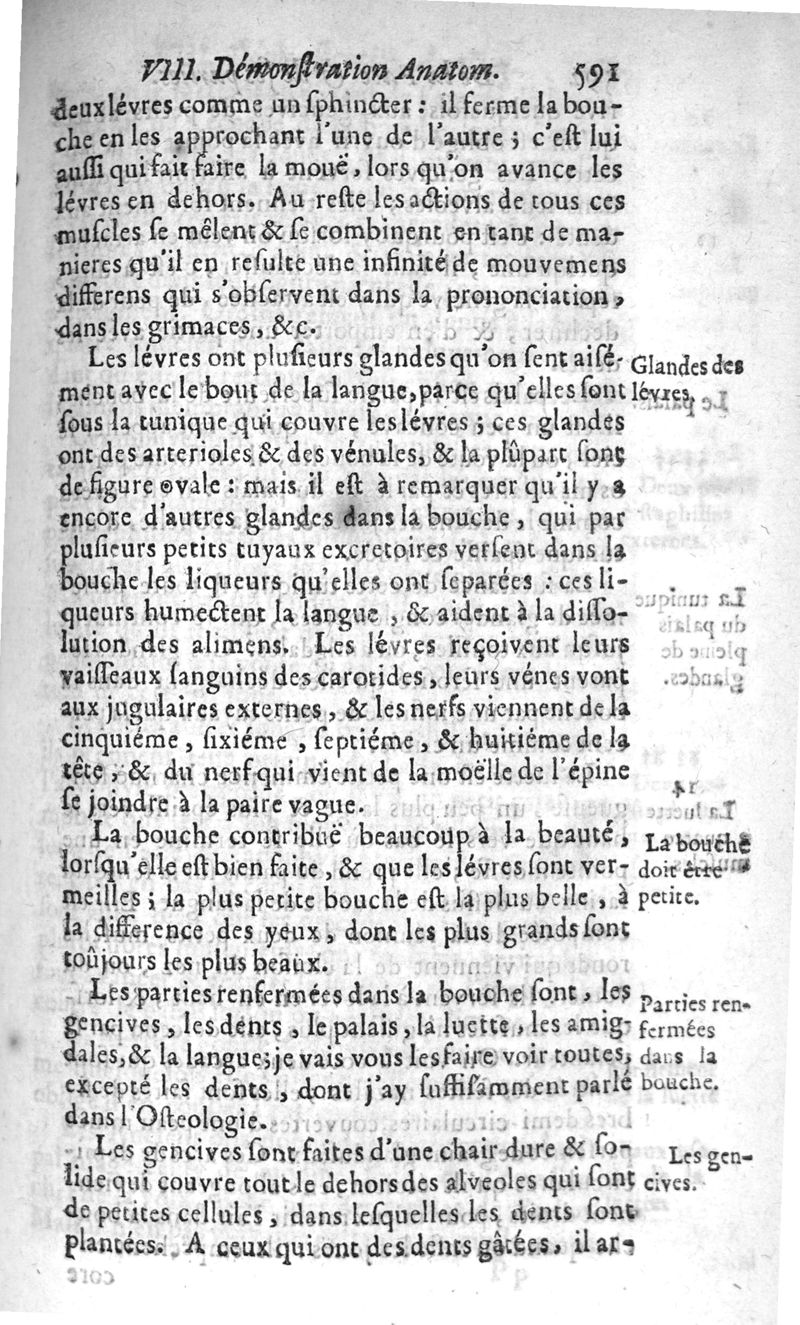 VIII. Démonſtration Anatom. 591
deux lévres comme un ſphincter : il ferme la bou-
che en les approchant l'une de l'autre ; c'eſt lui
auſſi qui fait faire la mouë, lors qu'on avance les
lévres en dehors. Au reſte les actions de tous ces
muſcles ſe mêlent & ſe combinent en tant de ma-
nieres qu'il en reſulte une infinité de mouvemens
differens qui s'obſervent dans la prononciation,
dans les grimaces, &c.
Les lévres ont pluſieurs glandes qu'on ſent aiſé-
ment avec le bout de la langue, parce qu'elles ſont
ſous la tunique qui couvre les lévres ; ces glandes
ont des arterioles & des vénules, & la plûpart ſont
de figure ovale : mais il eſt à remarquer qu'il y a
encore d'autres glandes dans la bouche, qui par
pluſieurs petits tuyaux excretoires verſent dans la
bouche les liqueurs qu'elles ont ſeparées : ces li-
queurs humectent la langue, & aident à la diſſo-
lution des alimens. Les lévres reçoivent leurs
vaiſſeaux ſanguins des carotides, leurs vénes vont
aux jugulaires externes, & les nerfs viennent de la
cinquiéme, ſixiéme, ſeptiéme, & huitiéme de la
tête, & du nerf qui vient de la moëlle de l'épine
ſe joindre à la paire vague.
La bouche contribuë beaucoup à la beauté,
lorſqu'elle eſt bien faite, & que les lévres ſont ver-
meilles ; la plus petite bouche eſt la plus belle, à
la difference des yeux, dont les plus grands ſont
toûjours les plus beaux.
Les parties renfermées dans la bouche ſont, les
gencives, les dents, le palais, la luette, les amig-
dales, & la langue ; je vais vous les faire voir toutes,
excepté les dents, dont j'ay ſuffiſamment parlé
dans l'Oſteologie.
Les gencives ſont faites d'une chair dure & ſo-
lide qui couvre tout le dehors des alveoles qui ſont
de petites cellules, dans leſquelles les dents ſont
plantées. A ceux qui ont des dents gâtées, il ar-
Glandes des
lévres.
La bouche
doit être
petite.
Parties ren-
fermées
dans la
bouche.
Les gen-
cives.